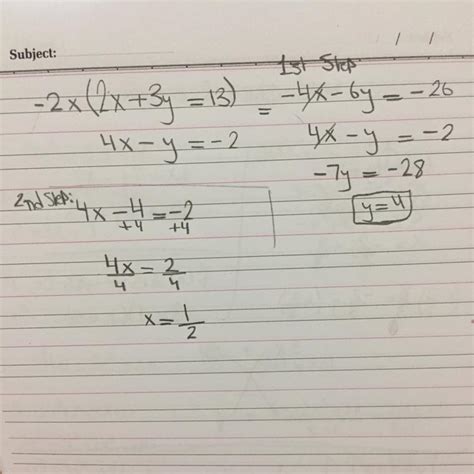 Subject:
/ /
1st Step
-2x(2x+3y=13) = -4x-6y=-26
4x-y=-2 4x-y=-2
-7y=-28
y=4
2nd Step:
4x-4=-2
+4 +4
4x/4=2/4
x=1/2